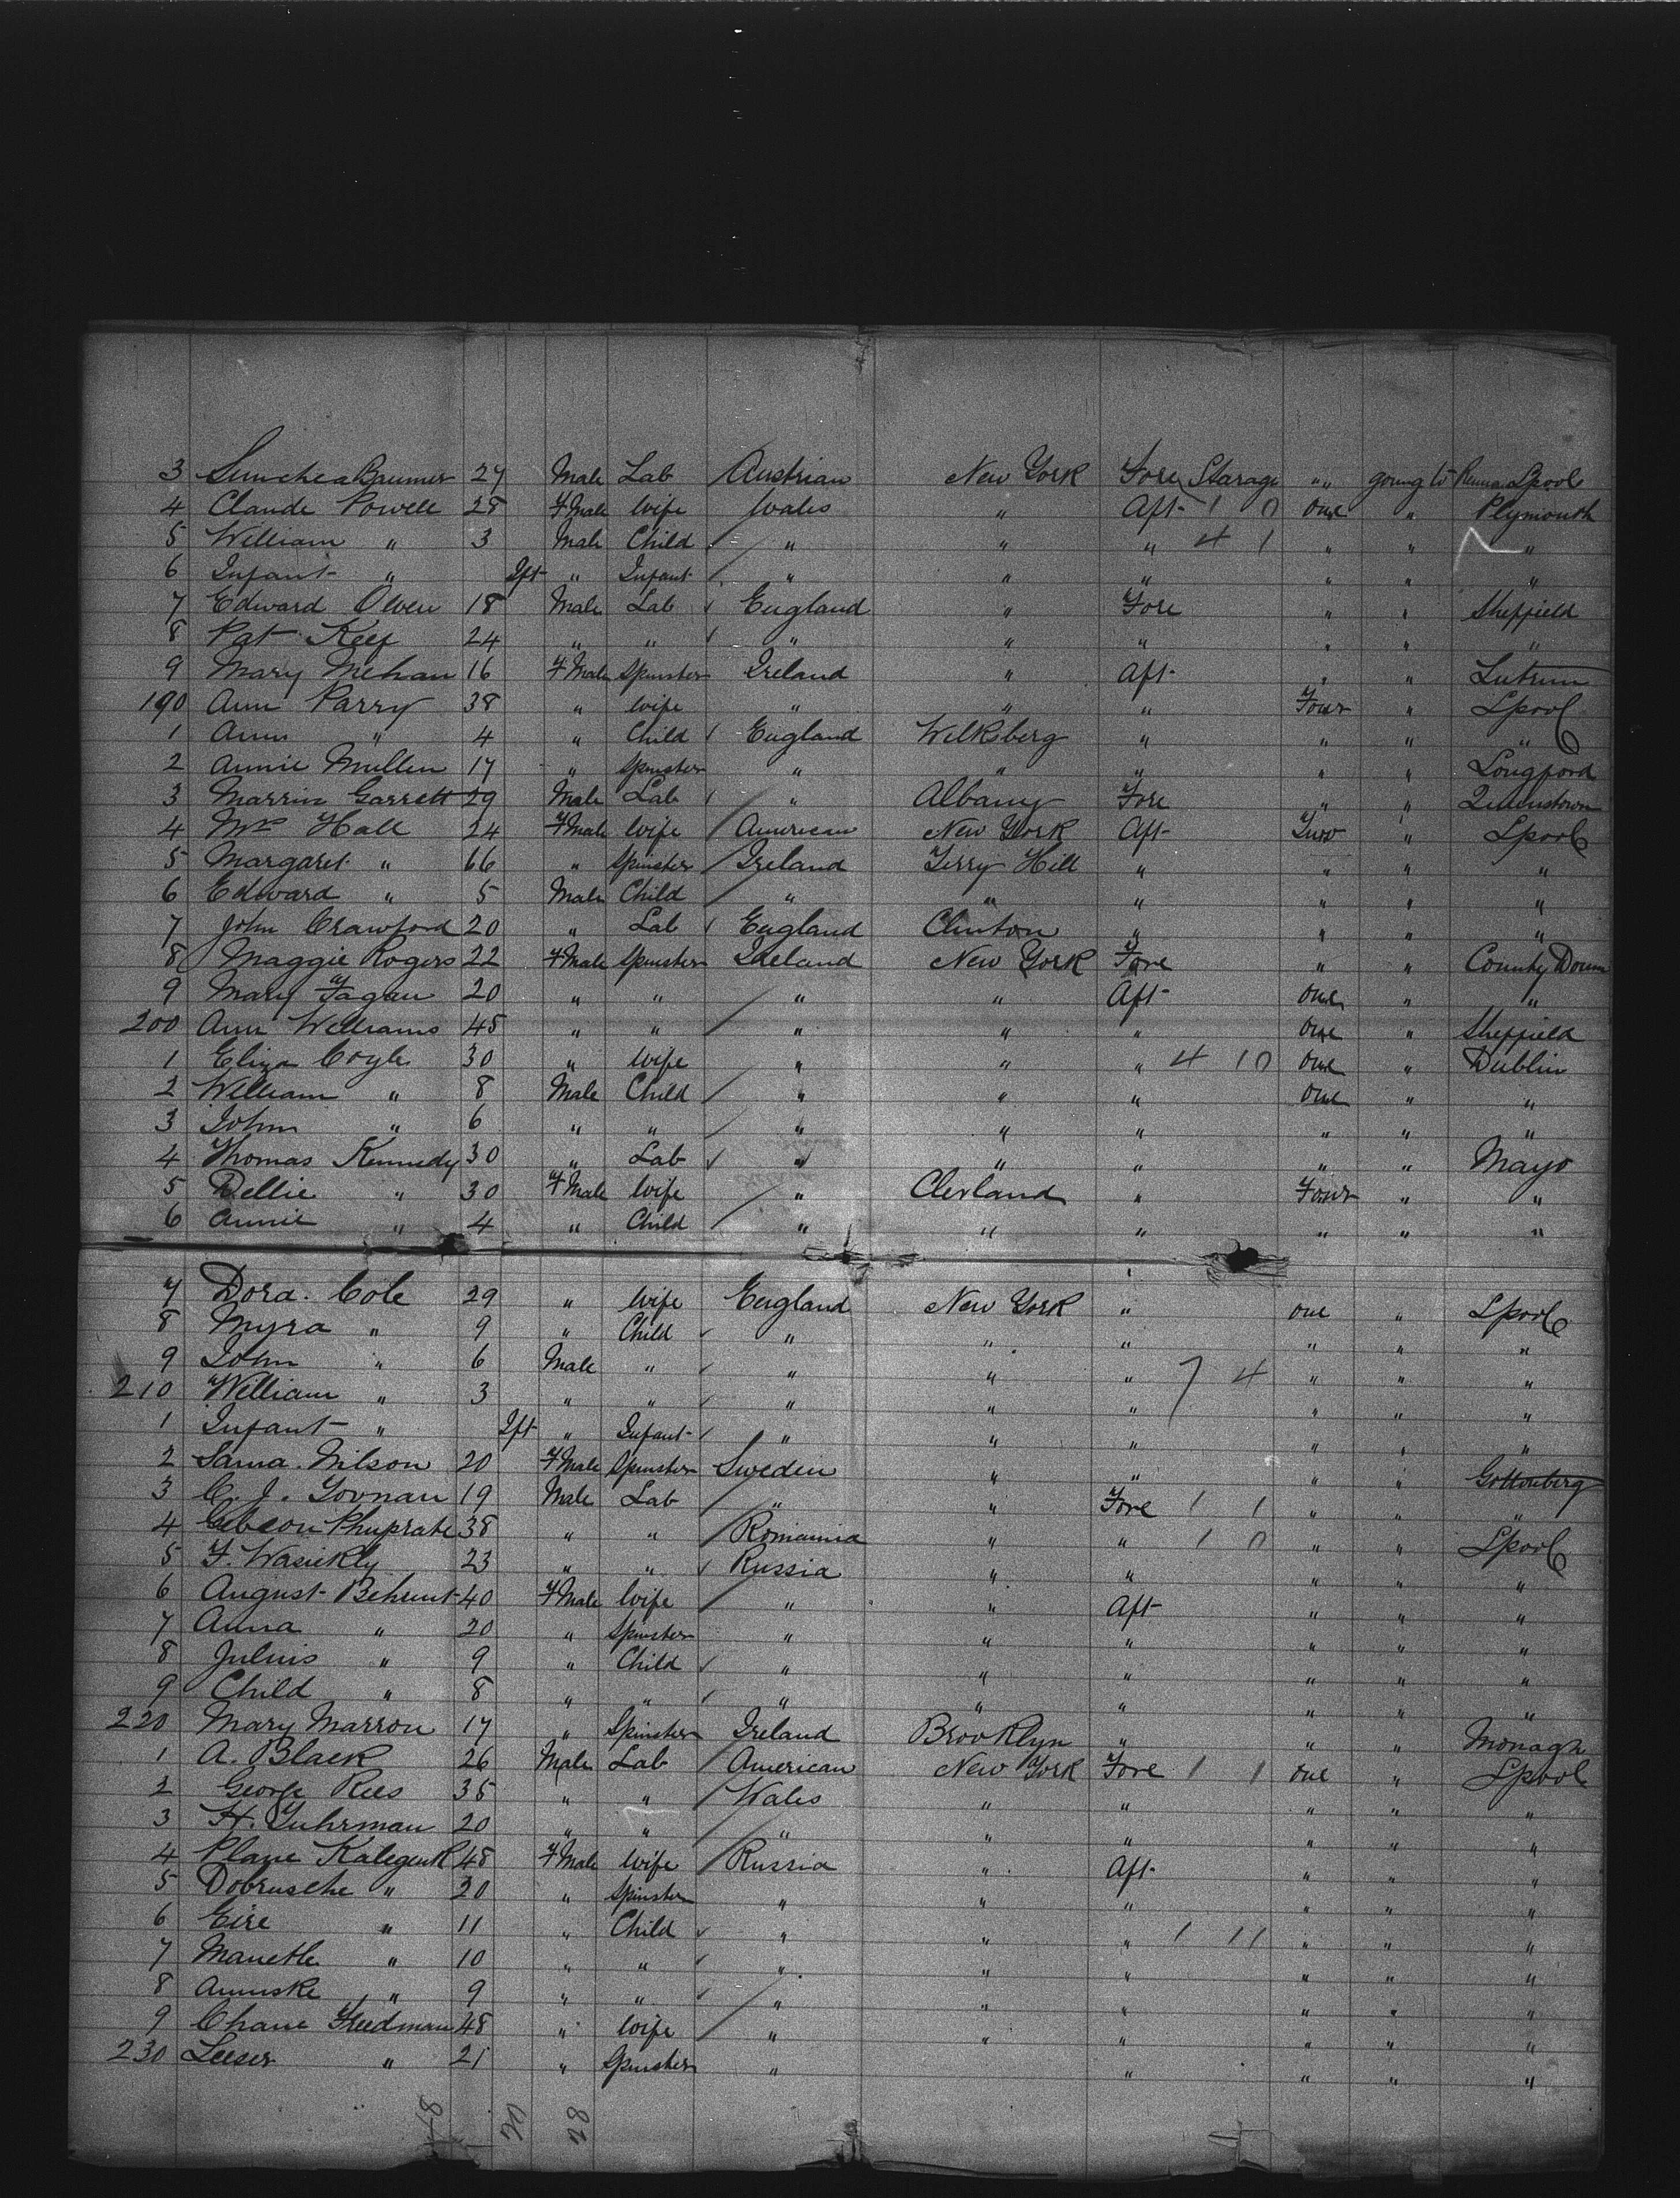 3 Baumer 27 Male Lab Austrian New York Fore Starage " " going to Lpool
4 Claude Powell 28 F Male Wife Wales " Aft 1 0 one " Plymouth
5 William " 3 Male Child " " " 4 1 " " "
6 Infant " Ift " Infant " " " " " "
7 Edward Owen 18 Male Lab England " Fore " " Sheffield
8 Pat Keef 24 " " " " " " " "
9 Mary Mehan 16 F Male Spinster Ireland " Aft " " Lutrim
190 Ann Parry 38 " Wife " " " Four " Lpool
1 Ann " 4 " Child England Wilksberg " " " "
2 Annie Mullen 17 " Spinster " " " " " Longford
3 Marrin Garrett 29 Male Lab " Albany Fore " " Queenstown
4 Mrs Hall 24 F Male Wife American New York Aft Two " Lpool
5 Margaret " 66 " Spinster Ireland Terry Hill " " " "
6 Edward " 5 Male Child " " " " " "
7 John Crawford 20 " Lab England Clinton " " " "
8 Maggie Rogers 22 F Male Spinster Ireland New York Fore " " County Down
9 Mary Fagan 20 " " " " Aft one " "
200 Ann Williams 45 " " " " " one " Sheffield
1 Eliza Coyle 30 " Wife " " " 4 10 one " Dublin
2 William " 8 Male Child " " " one " "
3 John " 6 " " " " " " " "
4 Thomas Kennedy 30 " Lab " " " " " Mayo
5 Dellie " 30 F Male Wife " Clevland " Four " "
6 Annie " 4 " Child " " " " " "
7 Dora Cole 29 " Wife England New York " one " Lpool
8 Myra " 9 " Child " " " " " "
9 John " 6 Male " " " " 7 4 " " "
210 William " 3 " " " " " " " "
1 Infant " Ift " Infant " " " " " "
2 Sama Nilson 20 F Male Spinster Sweden " " " " Gottenberg
3 C. J. 19 Male Lab " " Fore 1 1 " " "
4 38 " " Romainia " " 1 0 " " Lpool
5 F. Wasickly 23 " " Russia " " " " "
6 August Behrent 40 F Male Wife " " Aft " " "
7 Anna " 20 " Spinster " " " " " "
8 Julius " 9 " Child " " " " " "
9 Child " 8 " " " " " " " "
220 Mary Marron 17 " Spinster Ireland Brooklyn " " " Monagh
1 A. Black 26 Male Lab American New York Fore 1 1 one " Lpool
2 George Rees 35 " " Wales " " " " "
3 H. Fuhrman 20 " " " " " " " "
4 Plane 48 F Male Wife Russia " Aft " " "
5 Dobrusche " 20 " Spinster " " " " " "
6 Eire " 11 " Child " " " 1 11 " " "
7 Manethe " 10 " " " " " " " "
8 Annuske " 9 " " " " " " " "
9 Chane Freedman 48 " Wife " " " " " "
230 Leeser " 21 " Spinster " " " " "
18 20 28